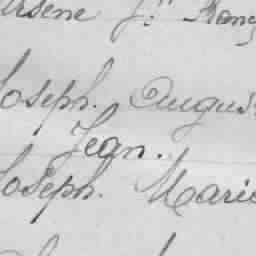 Arsène Jh
Joseph. Augus
Jean.
Joseph. Marie